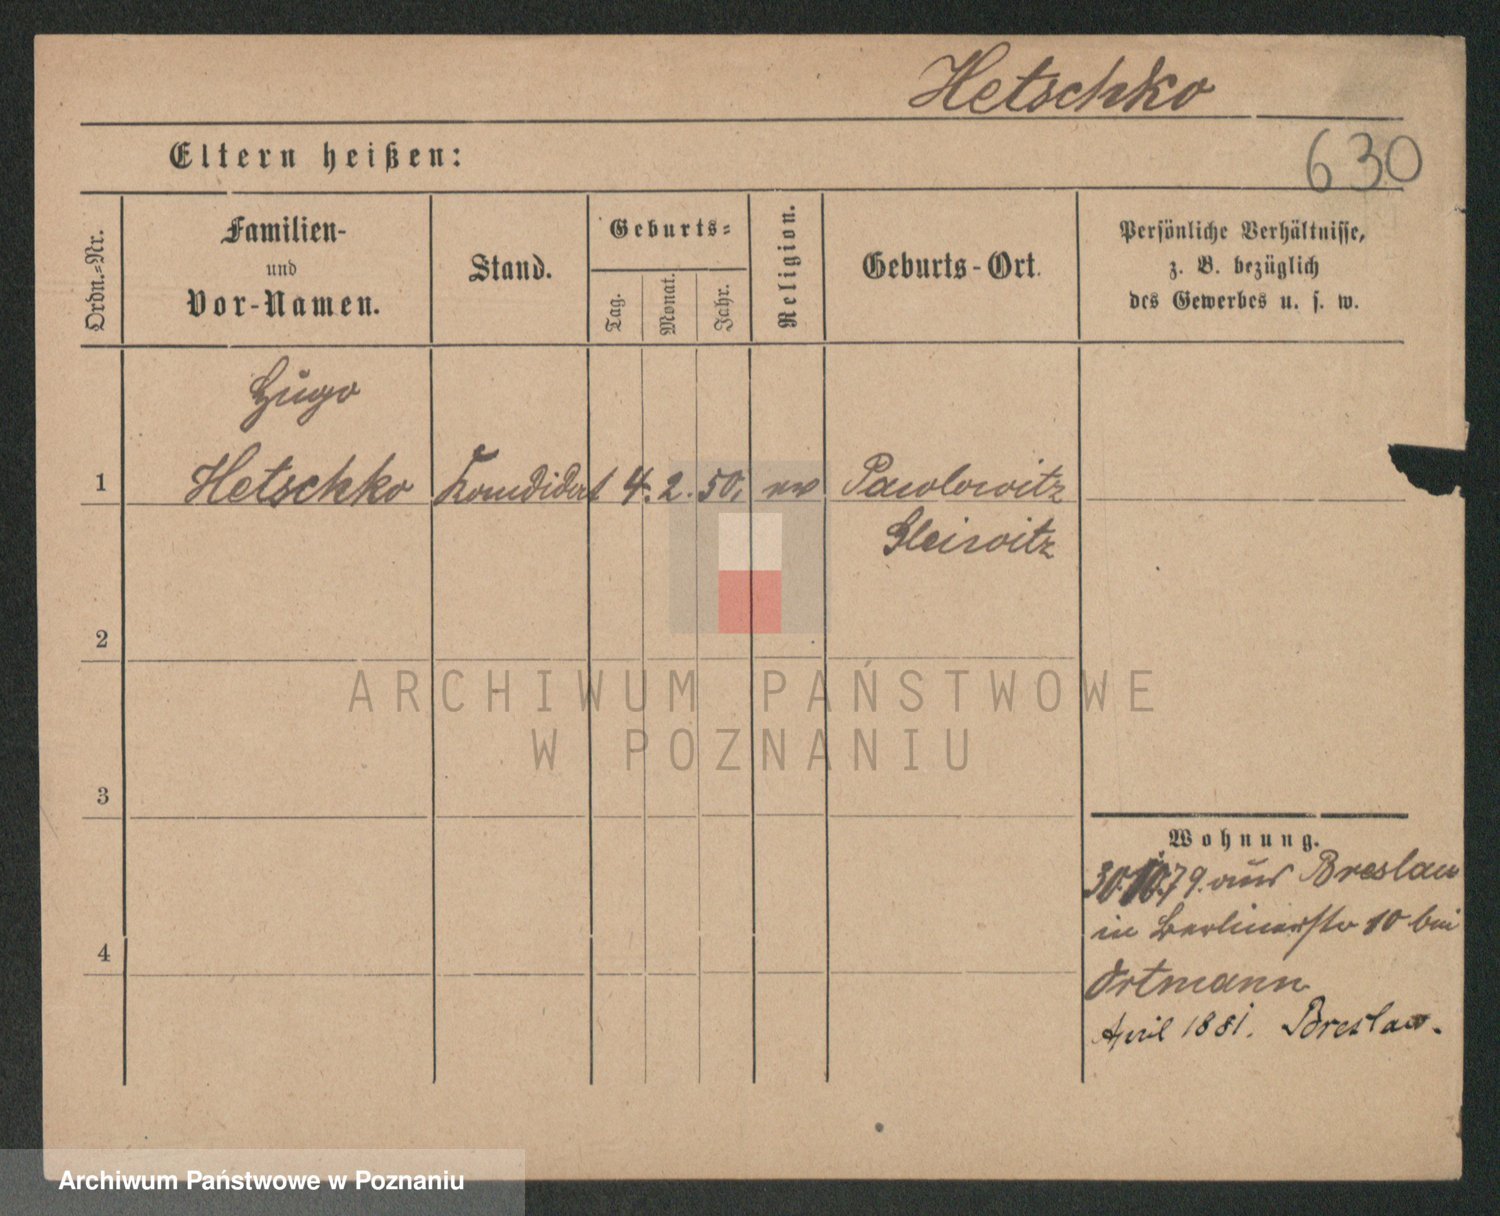 Hetschko
630
Eltern heißen:
Ordn.=Nr.
Familien-
und
Vor-Namen.
Stand.
Geburts=
Tag.
Monat.
Jahr.
Religion.
Geburts-Ort.
Persönliche Verhältnisse,
z. B. bezüglich
des Gewerbes u. s. w.
Hugo
1 Hetschko Kandidat 4. 2. 50. ev Pawlowitz
Gleiwitz
2
3
4
Wohnung.
30.10.79. aus Breslau
in Berlinerstr 10 bei
Ortmann
April 1881. Breslau.
ARCHIWUM PAŃSTWOWE
W POZNANIU
Archiwum Państwowe w Poznaniu